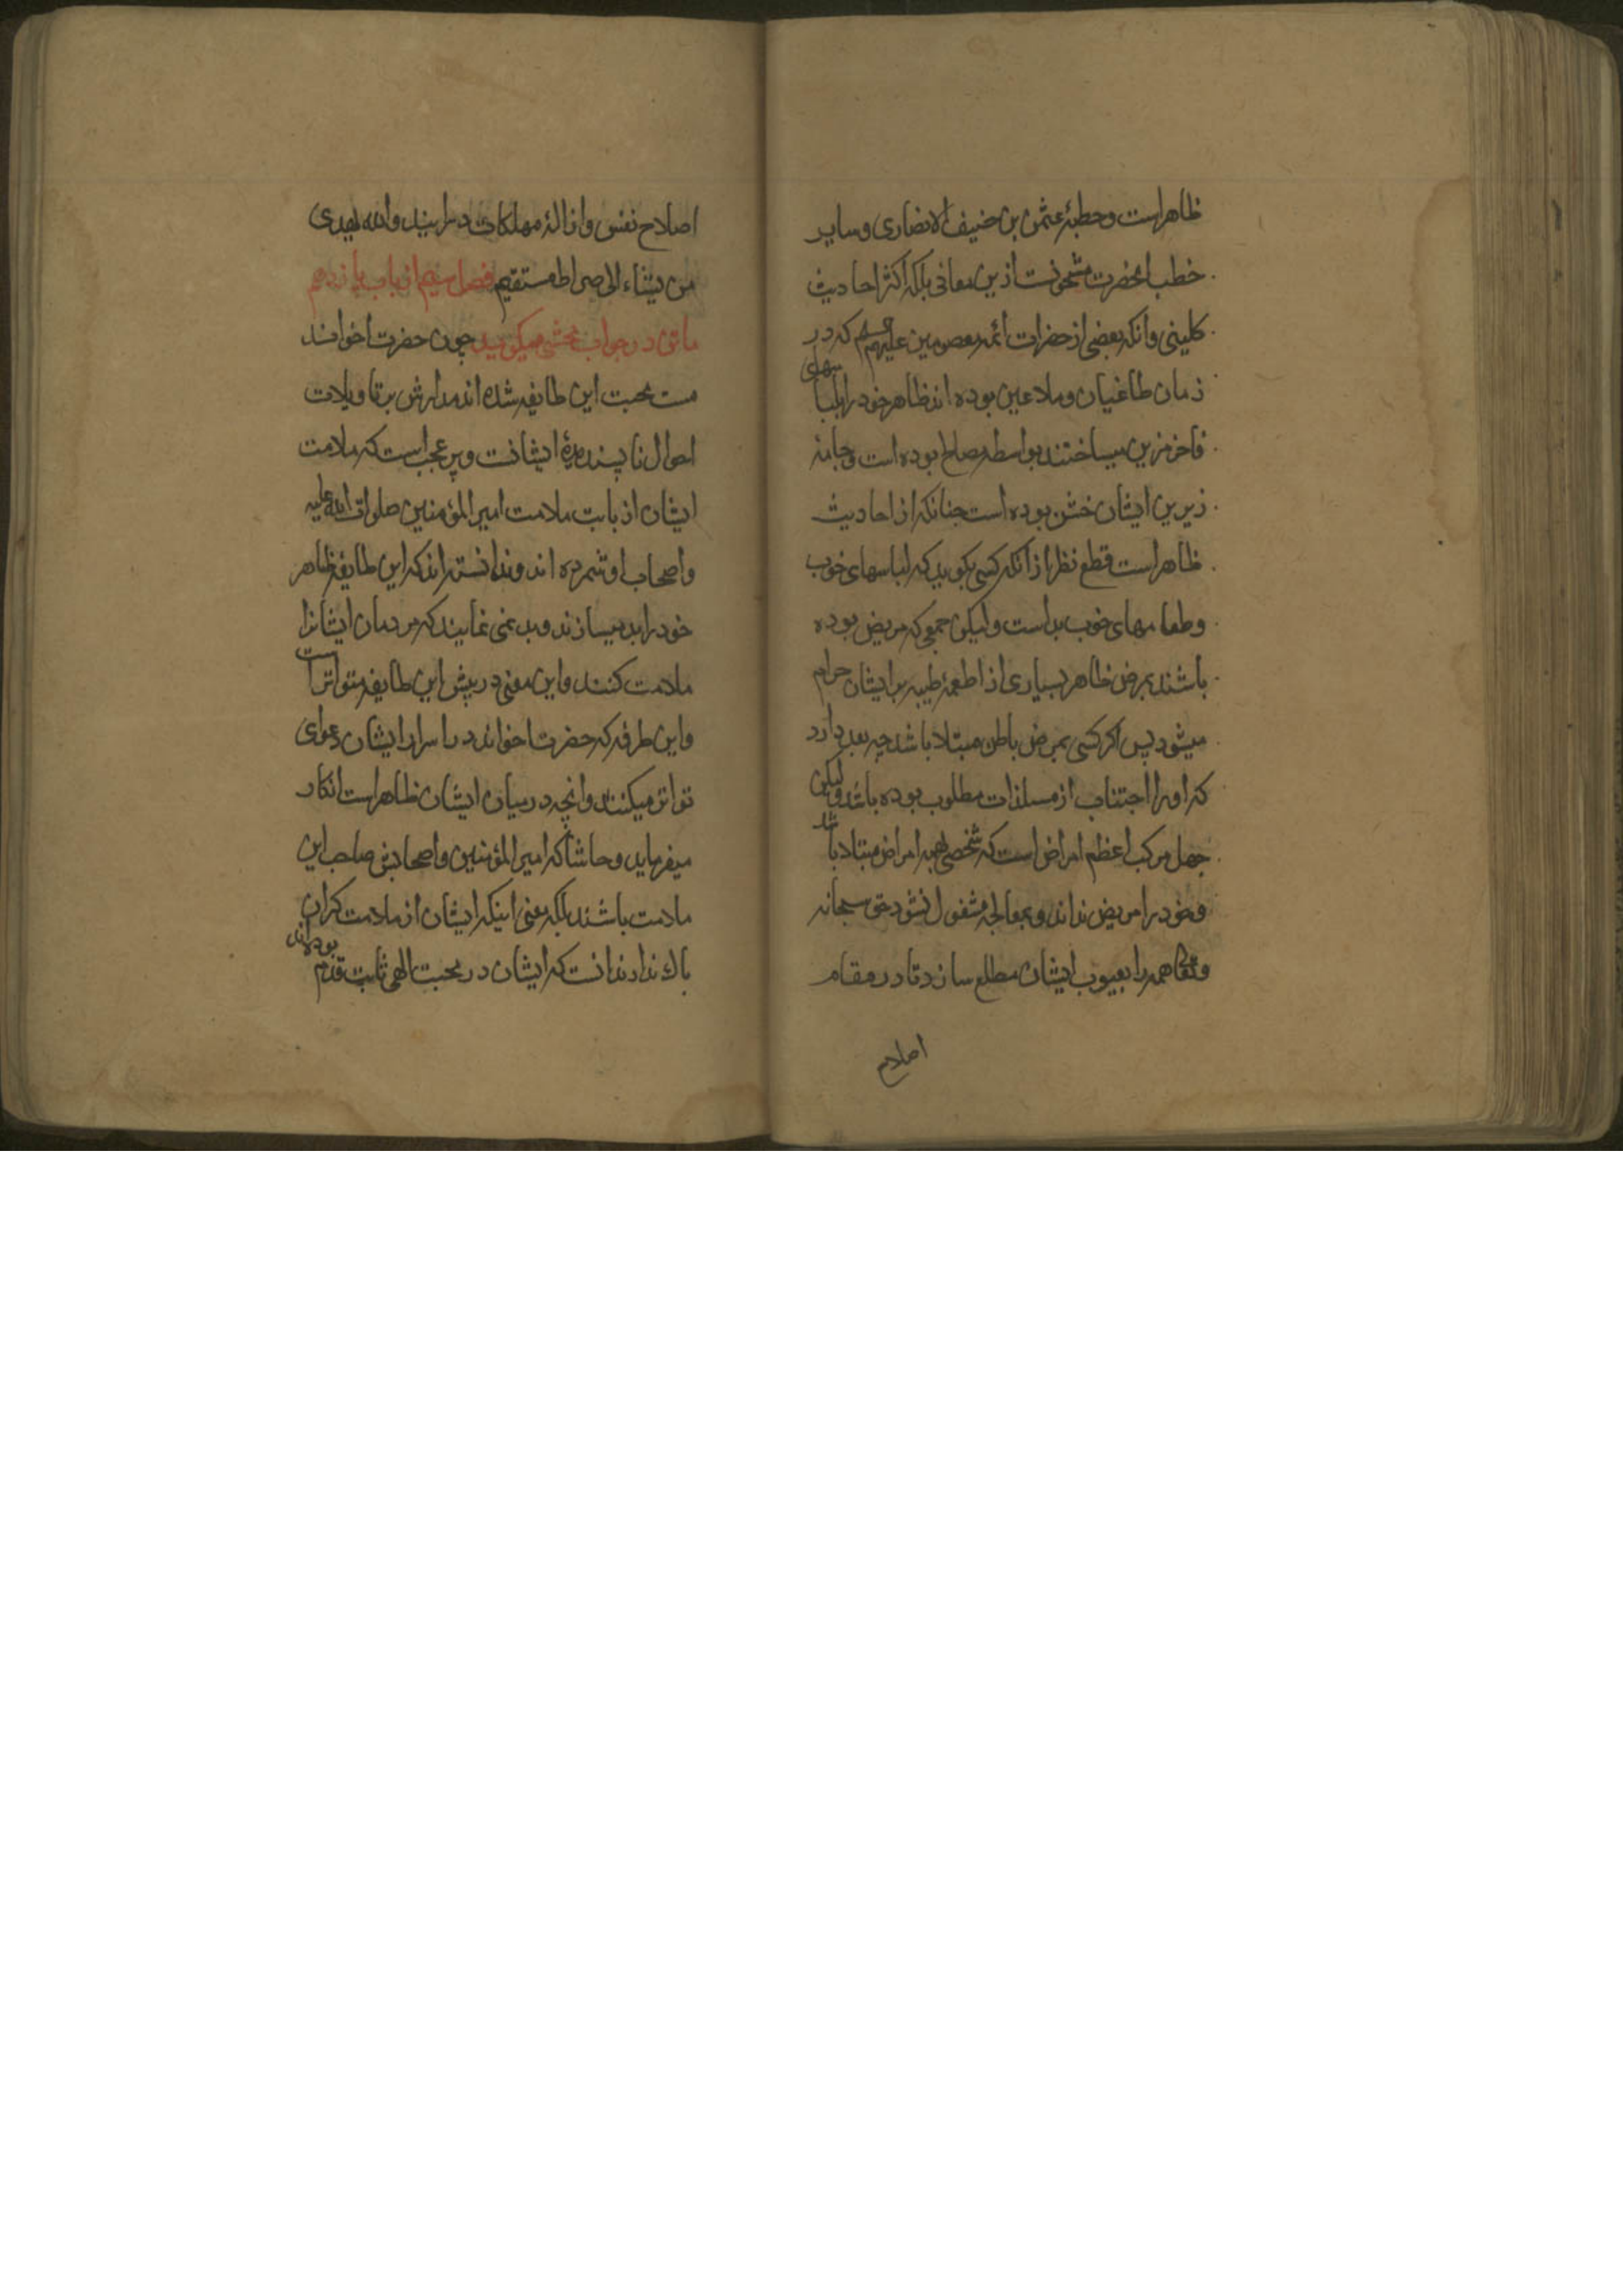 ظاهراست وخطبهٔ عثمن بن حنیف الانصاری وسایر
خطب انحضرت مشحونست ازین معانی بلکه اکثر احادیث
کلینی وانکه بعضی از حضرات ائمه معصومین علیهم السلم که در
زمان طاغیان وملاعین بوده اند ظاهر خود را بلباسهای
فاخر مزین میساختند بواسطه مصالح بوده است وجامهٔ
زیرین ایشان خشن بوده است چنانکه از احادیث
ظاهراست قطع نظر از انکه کسی بکوید که لباسهای خوب
وطعامهای خوب بداست ولیکن جمعی که مریض بوده
باشند بمرض ظاهر بسیاری از اطعمهٔ طیبه بر ایشان حرام
میشود پس اکر کسی بمرض باطن مبتلا باشد چه بعد دارد
که اورا اجتناب از مستلذات مطلوب بوده باشد ولیکن
جهل مرکب اعظم امراض است که شخصی بهمه امراض مبتلا باشد
وخود را مریض نداند وبمعالجه مشغول نشود حق سبحانه
وتعالی همه را بعیوب ایشان مطلع سازد تا در مقام
اصلاح
اصلاح نفس وازالهٔ مهلکات درایند والله یهدی
من یشاء الی صراط مستقیم فصل سیم از باب یازدهم
ماتن در جواب محشی میکوید چون حضرت اخوند
مست محبت این طایفه شده اند مدارش بر تاویلات
احوال ناپسندیدهٔ ایشانست وپر عجب است که ملامت
ایشان از بابت ملامت امیر المؤمنین صلوات الله علیه
واصحاب او شمرده اند وندانسته اند که این طایفه ظاهر
خود را بد میسازند وبد می نمایند که مردمان ایشانرا
ملامت کنند واین معنی در پیش این طایفه متواتر است
واین طرفه که حضرت اخوند در اسرار ایشان دعوای
تواتر میکنند وانچه در میان ایشان ظاهر است انکار
میفرمایند وحاشا که امیر المؤمنین واصحابش صاحب این
ملامت باشند بلکه معنی اینکه ایشان از ملامت کران
باك ندارند انست که ایشان در محبت الهی ثابت قدم بوده اند